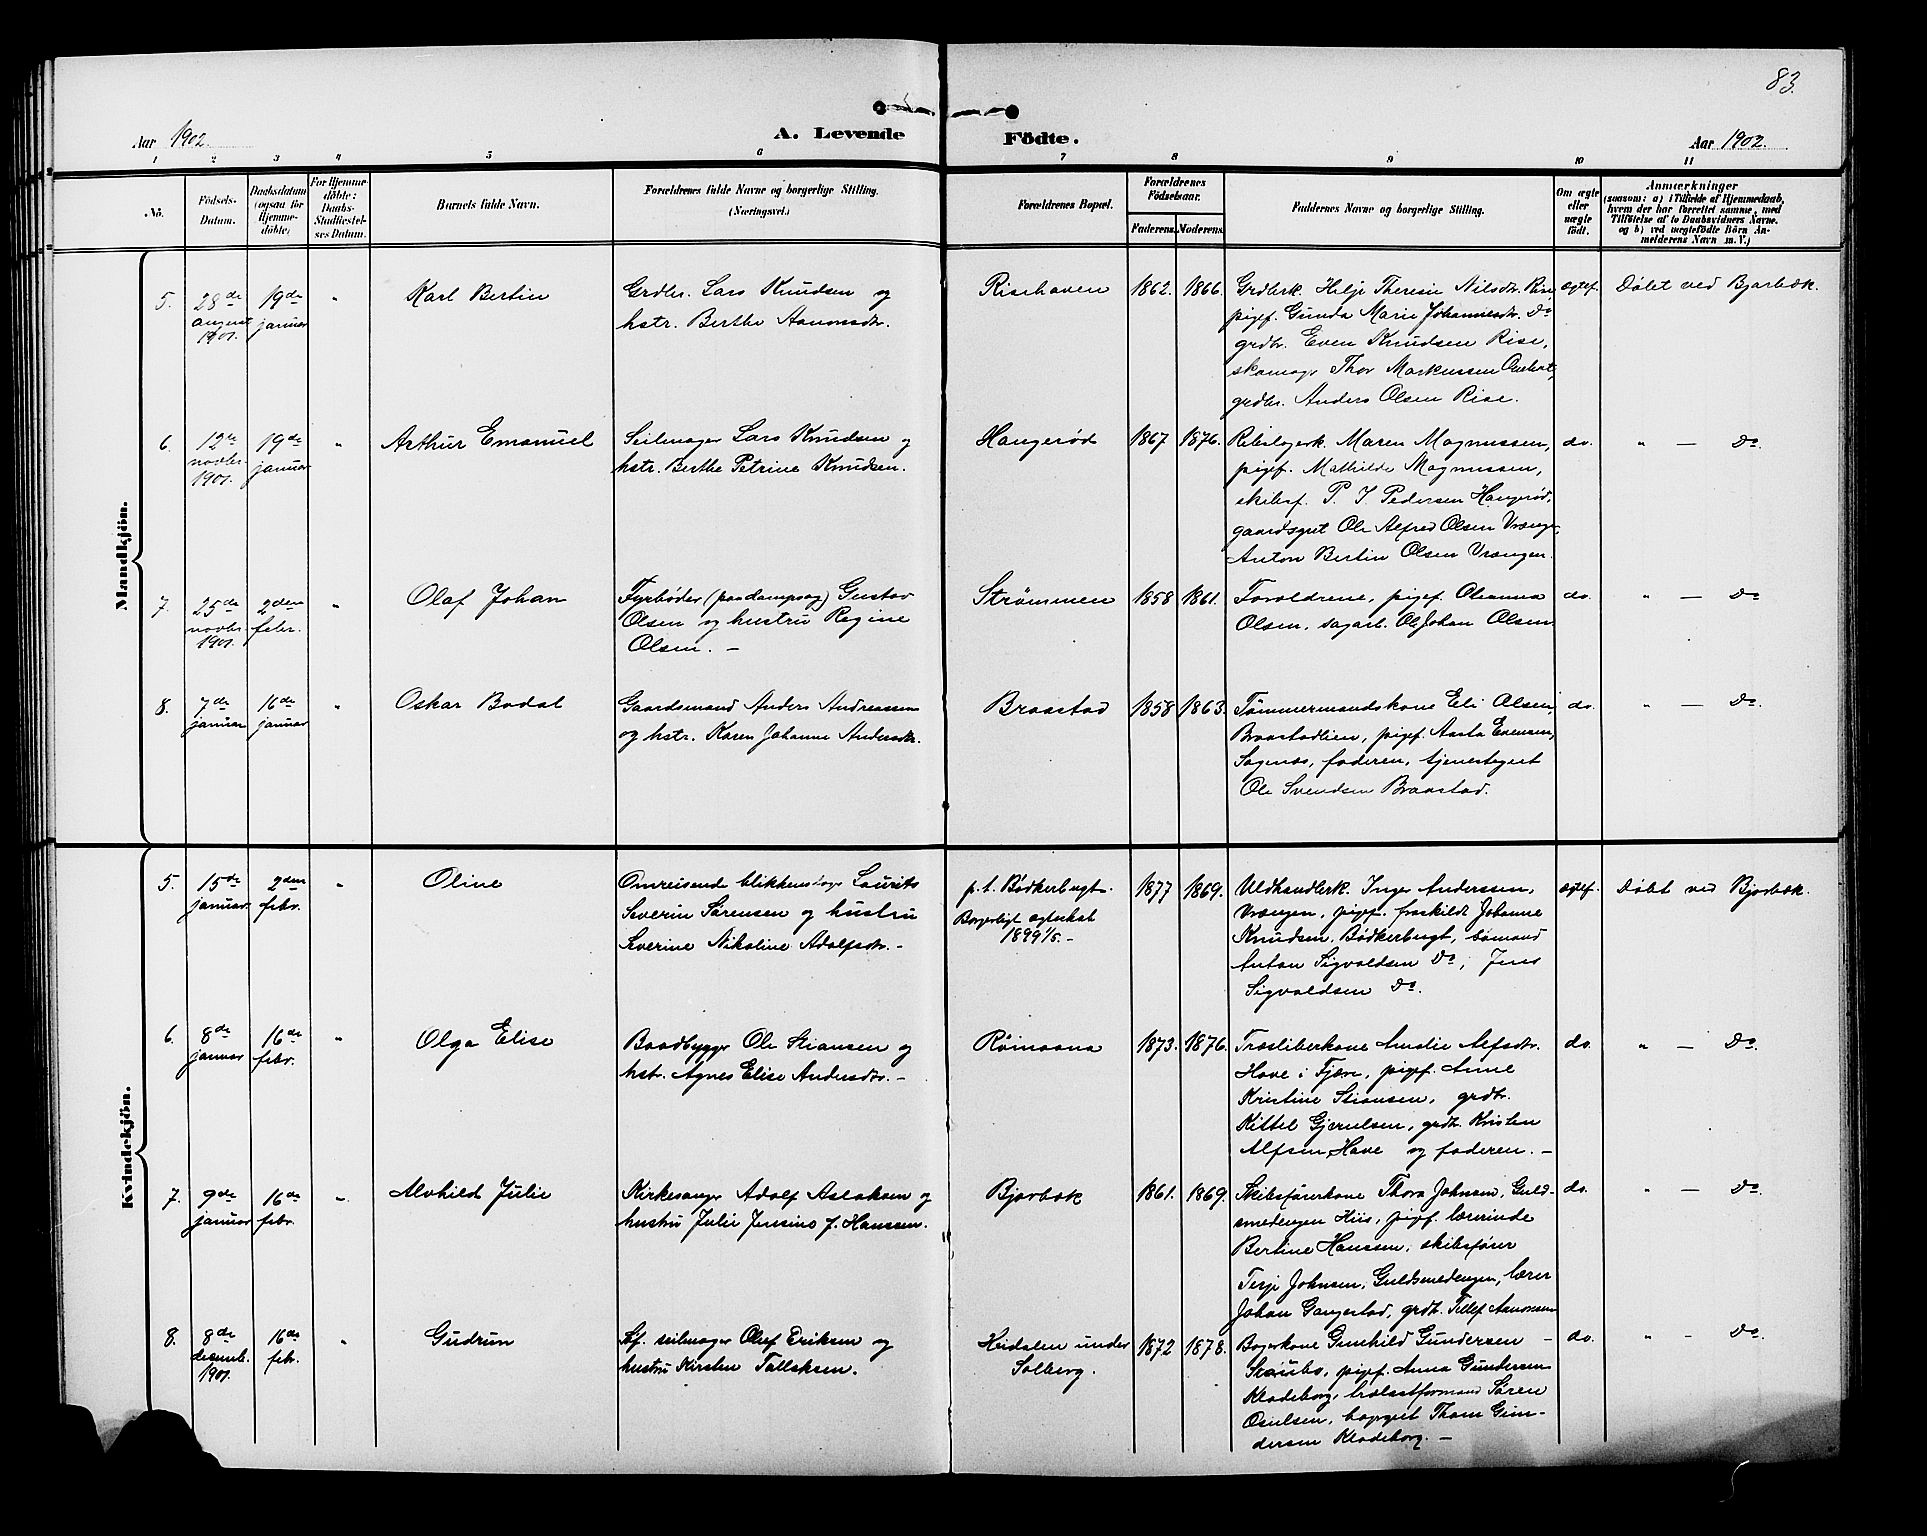 83.
Aar 1902.
A. Levende Födte.
Aar 1902.
1 2 3 4 5 6 7 8 9 10 11
No.
Födsels-Datum.
Daabsdatum (ogsaa for Hjemmedöbte)
For Hjemmedöbte: Daabs-Stadfæstelses Datum.
Barnets fulde Navn.
Forældrenes fulde Navne og borgerlige Stilling. (Næringsvei.)
Forældrenes Bopæl.
Forældrenes Födselsaar.
Faderens. Moderens.
Faddernes Navne og borgerlige Stilling.
Om ægte eller uægte födt.
Anmærkninger
(saasom: a) i Tilfælde af Hjemmedaab, hvem der har forrettet samme, med Tilföielse af to Daabsvidners Navne, og b) ved uægtefödte Börn Anmelderens Navn m. V.)
Mandkjön.
5. 28de august 1901. 19de januar " Karl Bertin
Grdbr. Lars Knudsen og
hstr. Berthe Aanonsdtr.
Risehaven 1862. 1866.
Grdbrk. Helje Theresie Nilsdtr. Rise,
pigef. Gunda Marie Johannesdtr. Do
grdbr. Even Knudsen Rise,
skomag. Thor Markussen
grdbr. Anders Olsen Rise.
ægtef. Döbt ved Bjorbæk.
6. 12te novbr. 1901. 19de januar " Arthur Emanuel
Seilmager Lars Knudsen og
hstr. Berthe Petrine Knudsen.
Hangeröd 1867 1876.
Maren Magnussen,
pigef. Mathilde Magnussen,
skibsf. P. I Pedersen Hangeröd,
gaardsgut Ole Alfred Olsen Vrænge,
Anton Bertin Olsen Vrængen.
do. " — Do
7. 25de novbr. 1901. 2den febr. " Olaf Johan
Fyrböder (paa dampsag) Gustav
Olsen og hustru Regine
Olsen. —
Strömmen 1858 1861.
Forældrene, pigef. Oleanna
Olsen, sagarb. Ole Johan Olsen
do. " — Do
8. 7de januar 16de januar " Oskar Bodal
Gaardsmand Anders Andreassen
og hstr. Karen Johanne Andersdtr.
Braastad 1858 1863.
Tømmermandskone Eli Olsen,
Braastadlien, pigef. Aasta Evensen,
Sagnes, faderen, tjenestegut
Ole Svendsen Braastad.
do. " — Do
Kvindekjön.
5. 15de januar. 2den febr. " Oline
Omreisende blikkenslager Laurits
Severin Sørensen og hustru
Severine Nikoline Adolfsdtr. —
p.t. Bödkerbugt.
Borgerligt egteskab
1899 1/5. —
1877 1869.
Uldhandlerk. Inger Andersen,
Vrængen, pigef. fraskildt Johanne
Knudsen, Bödkerbugt, sømand
Anton Sigvaldsen Do, Jens
Sigvaldsen Do.
ægtef. Döbt ved Bjorbæk.
6. 8de januar 16de febr. " Olga Elise
Baadbygger Ole Stiansen og
hstr. Agnes Elise Andersdtr. —
Römaana 1873. 1876.
Træsliberkone Amalie Alfsdtr.
Have i Fjære, pigef. Anne
Kristine Stiansen, grdbr.
Kittel Gjerulsen, grdbr. Kristen
Alfsen Have og faderen. —
do. " — Do
7. 9de januar 16de febr. " Alvhild Julie
Kirkesanger Adolf Aslaksen og
hustru Julie Jensine f. Hanssen.
Bjorbæk 1861. 1869.
Skibsførerkone Thora Johnsen, Guld-
smedengen Hiis, pigef. lærerinde
Bertine Hanssen, skibsfører
Terje Johnsen, Guldsmedengen, lærer
Johan Gangestad, grdbr. Tellef Aanonsen
do. " — Do
8. 8de decemb. 1901. 16de febr. " Gudrun
Sf. seilmager Oluf Eriksen og
hustru Kirsten Tallaksen.
Heidalen under
Solberg.
1872 1878.
Bagerkone Gunhild Gundersen —
Staubö, pigef. Anna Gundersen
Kladeborg, ballastformand Sören
Osulsen, baggut Thom Gun-
dersen Kladeborg. —
do. " — Do